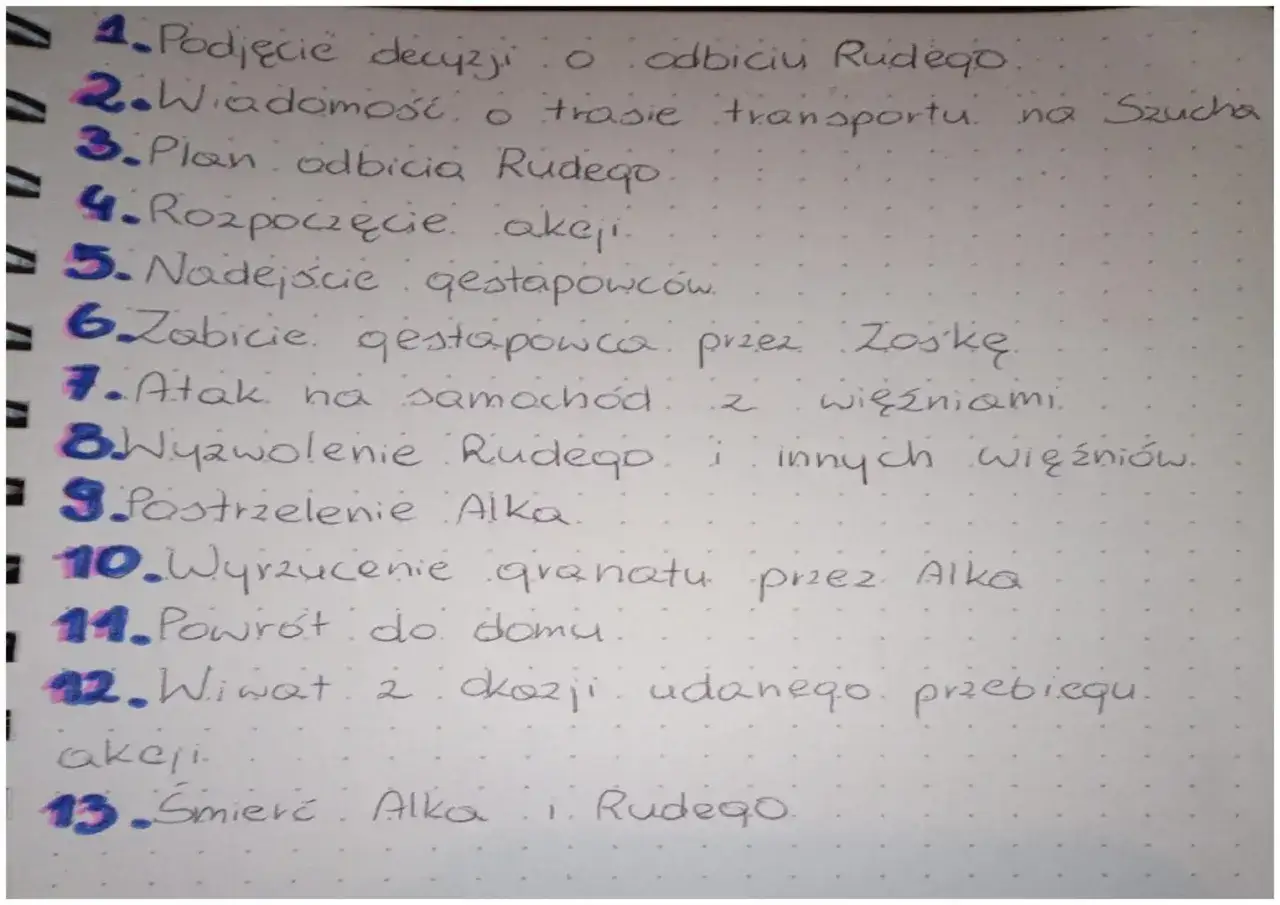 1. Podjęcie decyzji o odbiciu Rudego.
2. Wiadomość o trasie transportu na Szucha
3. Plan odbicia Rudego.
4. Rozpoczęcie akcji.
5. Nadejście gestapowców.
6. Zabicie gestapowca przez Zośkę.
7. Atak na samochód z więźniami.
8. Wyzwolenie Rudego i innych więźniów.
9. Postrzelenie Alka.
10. Wyrzucenie granatu przez Alka
11. Powrót do domu.
12. Wiwat z okazji udanego przebiegu
akcji.
13. Śmierć Alka i Rudego.